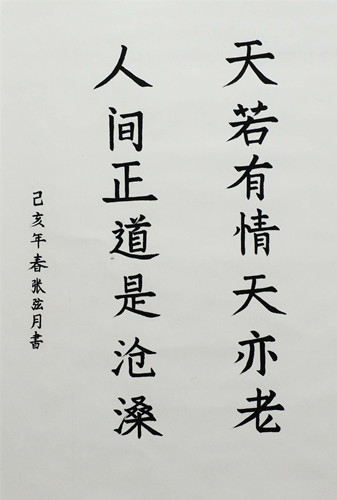 天若有情天亦老
人间正道是沧桑
己亥年春张弦月书